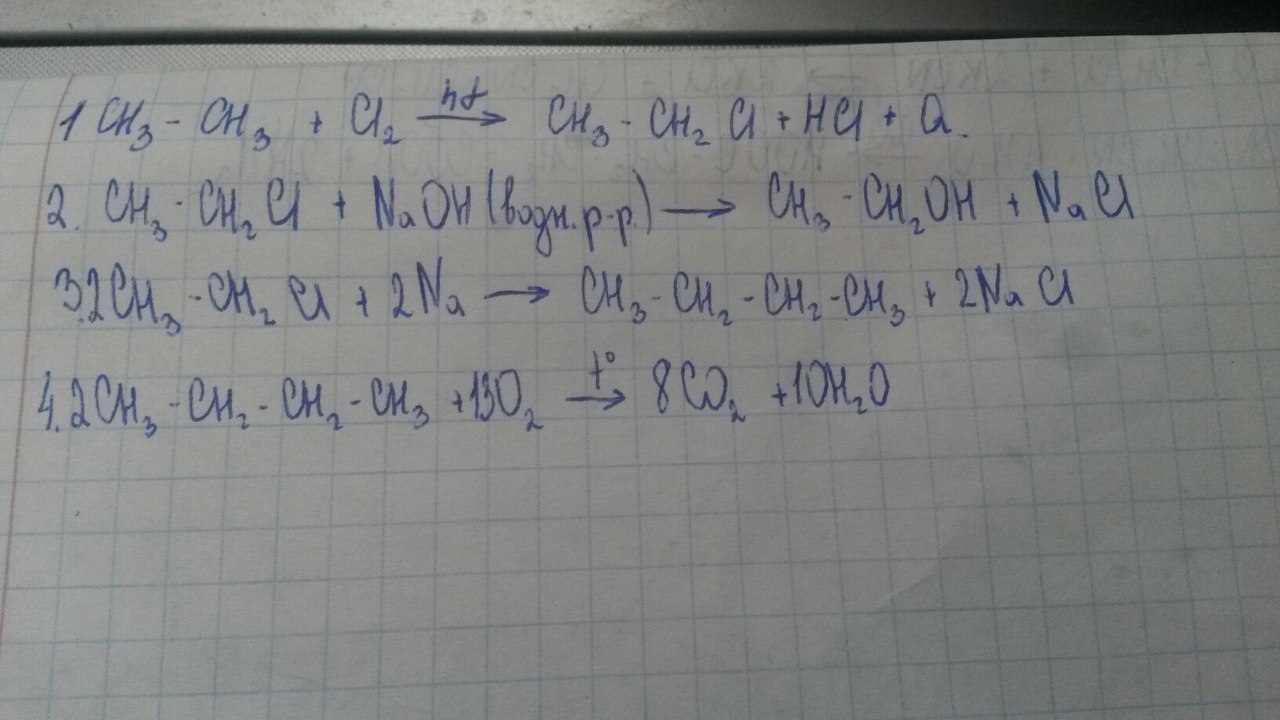 1 CH₃ - CH₃ + Cl₂ →(hγ) CH₃ - CH₂ Cl + HCl + Q.
2. CH₃ - CH₂Cl + NaOH (водн. р-р.) → CH₃ - CH₂OH + NaCl
3. 2CH₃ - CH₂ Cl + 2Na → CH₃ - CH₂ - CH₂ - CH₃ + 2NaCl
4. 2CH₃ - CH₂ - CH₂ - CH₃ + 13O₂ →(t°) 8CO₂ + 10H₂O